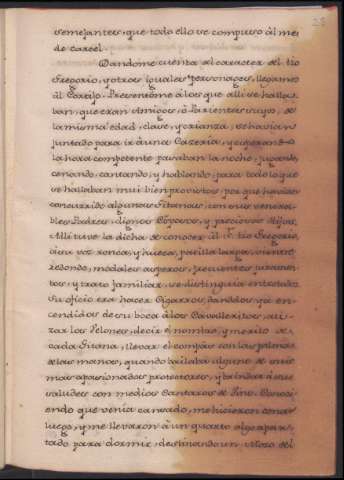 28
semejantes, que todo ello se compuso àl mes
de carcel.
Dandome cuenta del caracter del tio
Gregorio, y otros iguales Personages, llegamos
àl Cortijo. Previnome à los que alli se halla-
ban, que eran Amigos, ò Parientes suyos, de
la misma edad, clase, y crianza, se havian
juntado para ir à una Cazeria, y esperando
la hora competente pasaban la noche, jugando,
cenando, cantando, y hablando, para todo lo que
se hallaban mui bien provistos, por que havian
concurrido algunas Gitanas, con sus venera-
bles Padres, dignos Esposos, y preciosos Hijos,
Alli tuve la dicha de conocer àl S.r tio Gregorio,
à su voz ronca, y hueca, patilla larga, vientre
redondo, modales asperos, frecuentes juramen-
tos, y trato familiar, se distinguia entre todos.
Su oficio era hacer Cigarros, dandolos ya en-
cendidos de su boca à los Cavalleritos, ati-
zar los Velones, decir el nombre, y merito de
cada Gitana, llevar el compas con las palmas
de las manos, quando bailaba alguno de sus
mas apasionados protectores, y brindar à sus
saludes con medios Cantaros de Vino. Conoci-
endo que venia cansado, me hicieron cenar
luego, y me llevaron à un quarto algo apar-
tado para dormir, destinando un Mozo del